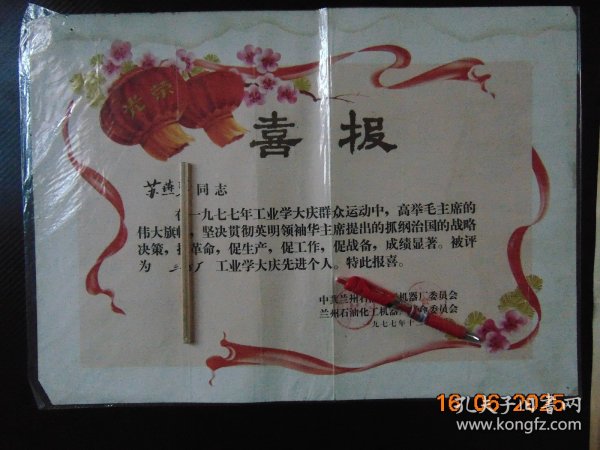 光荣
喜报
苏燕 同志
在一九七七年工业学大庆群众运动中，高举毛主席的
伟大旗帜，坚决贯彻英明领袖华主席提出的抓纲治国的战略
决策，抓革命，促生产，促工作，促战备，成绩显著。被评
为 厂 工业学大庆先进个人。特此报喜。
中共兰州石油化工机器厂委员会
兰州石油化工机器厂革命委员会
一九七七年十
16 06 2025
孔夫子旧书网
www.kongfz.com